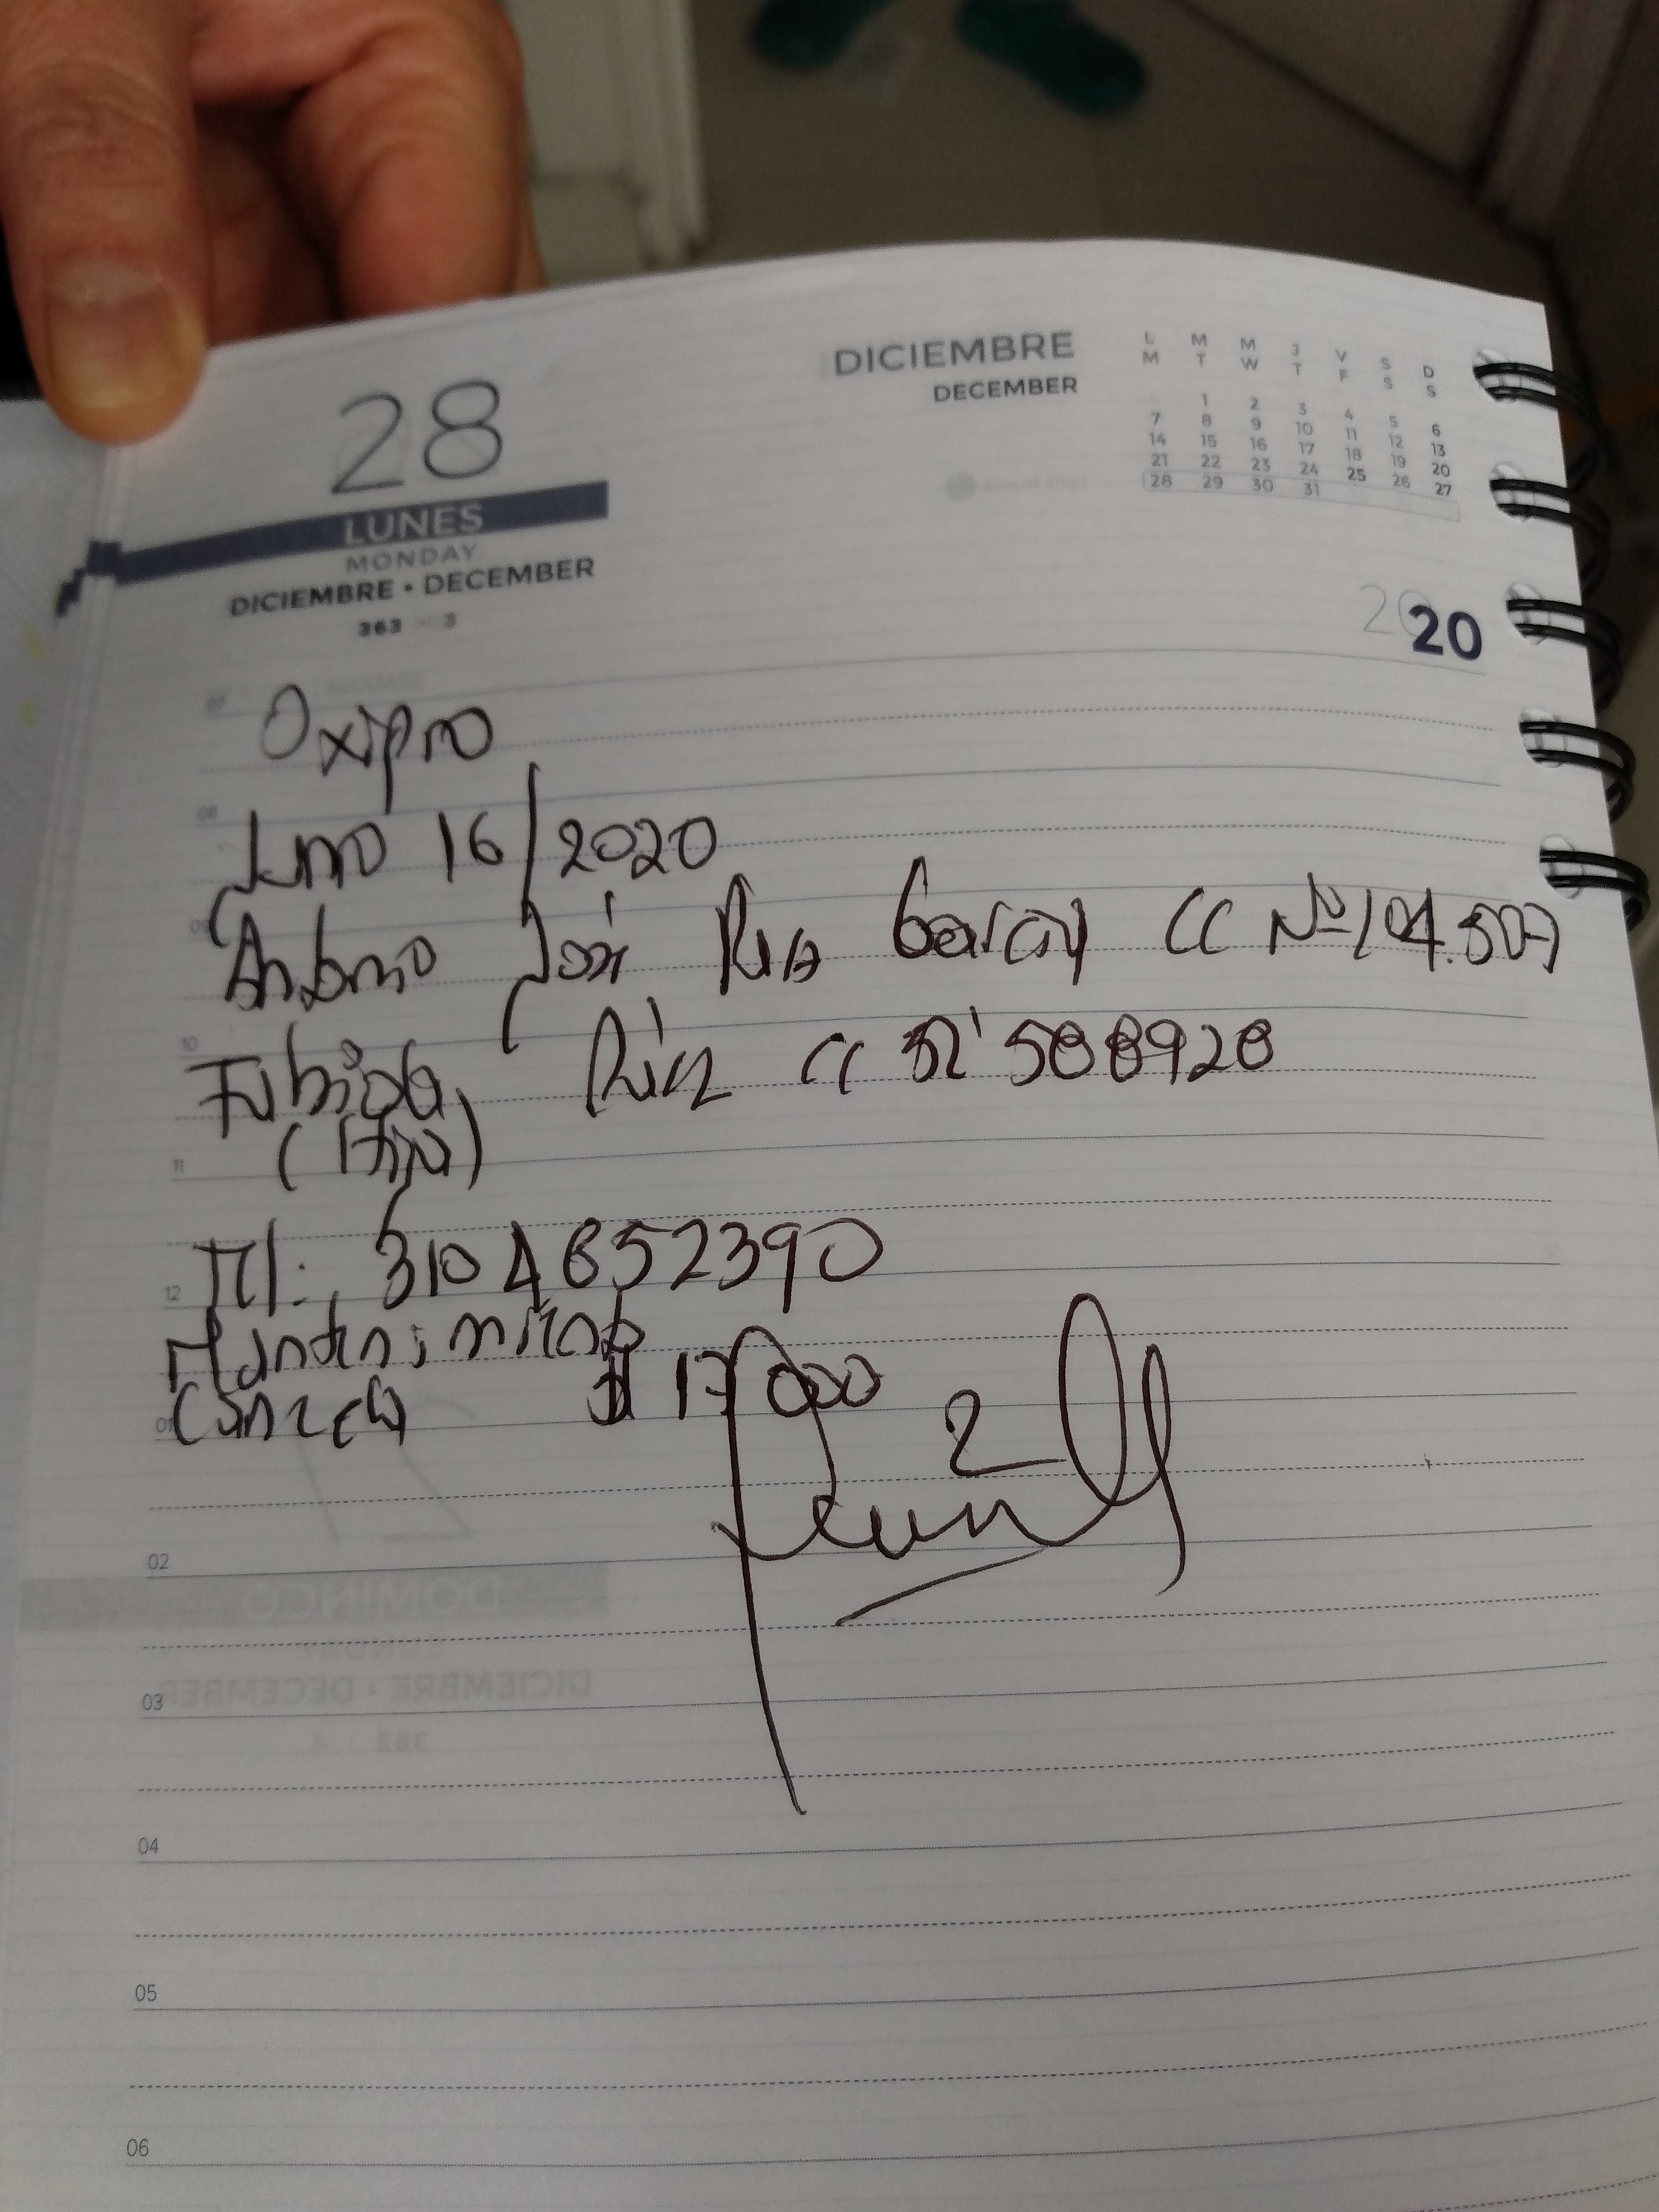 28
LUNES
MONDAY
DICIEMBRE • DECEMBER
363 3
DICIEMBRE
DECEMBER
L M M J V S D
M T W T F S S
1 2 3 4 5 6
7 8 9 10 11 12 13
14 15 16 17 18 19 20
21 22 23 24 25 26 27
28 29 30 31
2020
07
Oxipro
08
Junio 16/2020
09
Antonio José García CC Nº
10
Fabiola CC 32'588928
(Hija)
11
Tel: 310 4652390
12
Mantenimiento
01
$ 17000
02
03
04
05
06